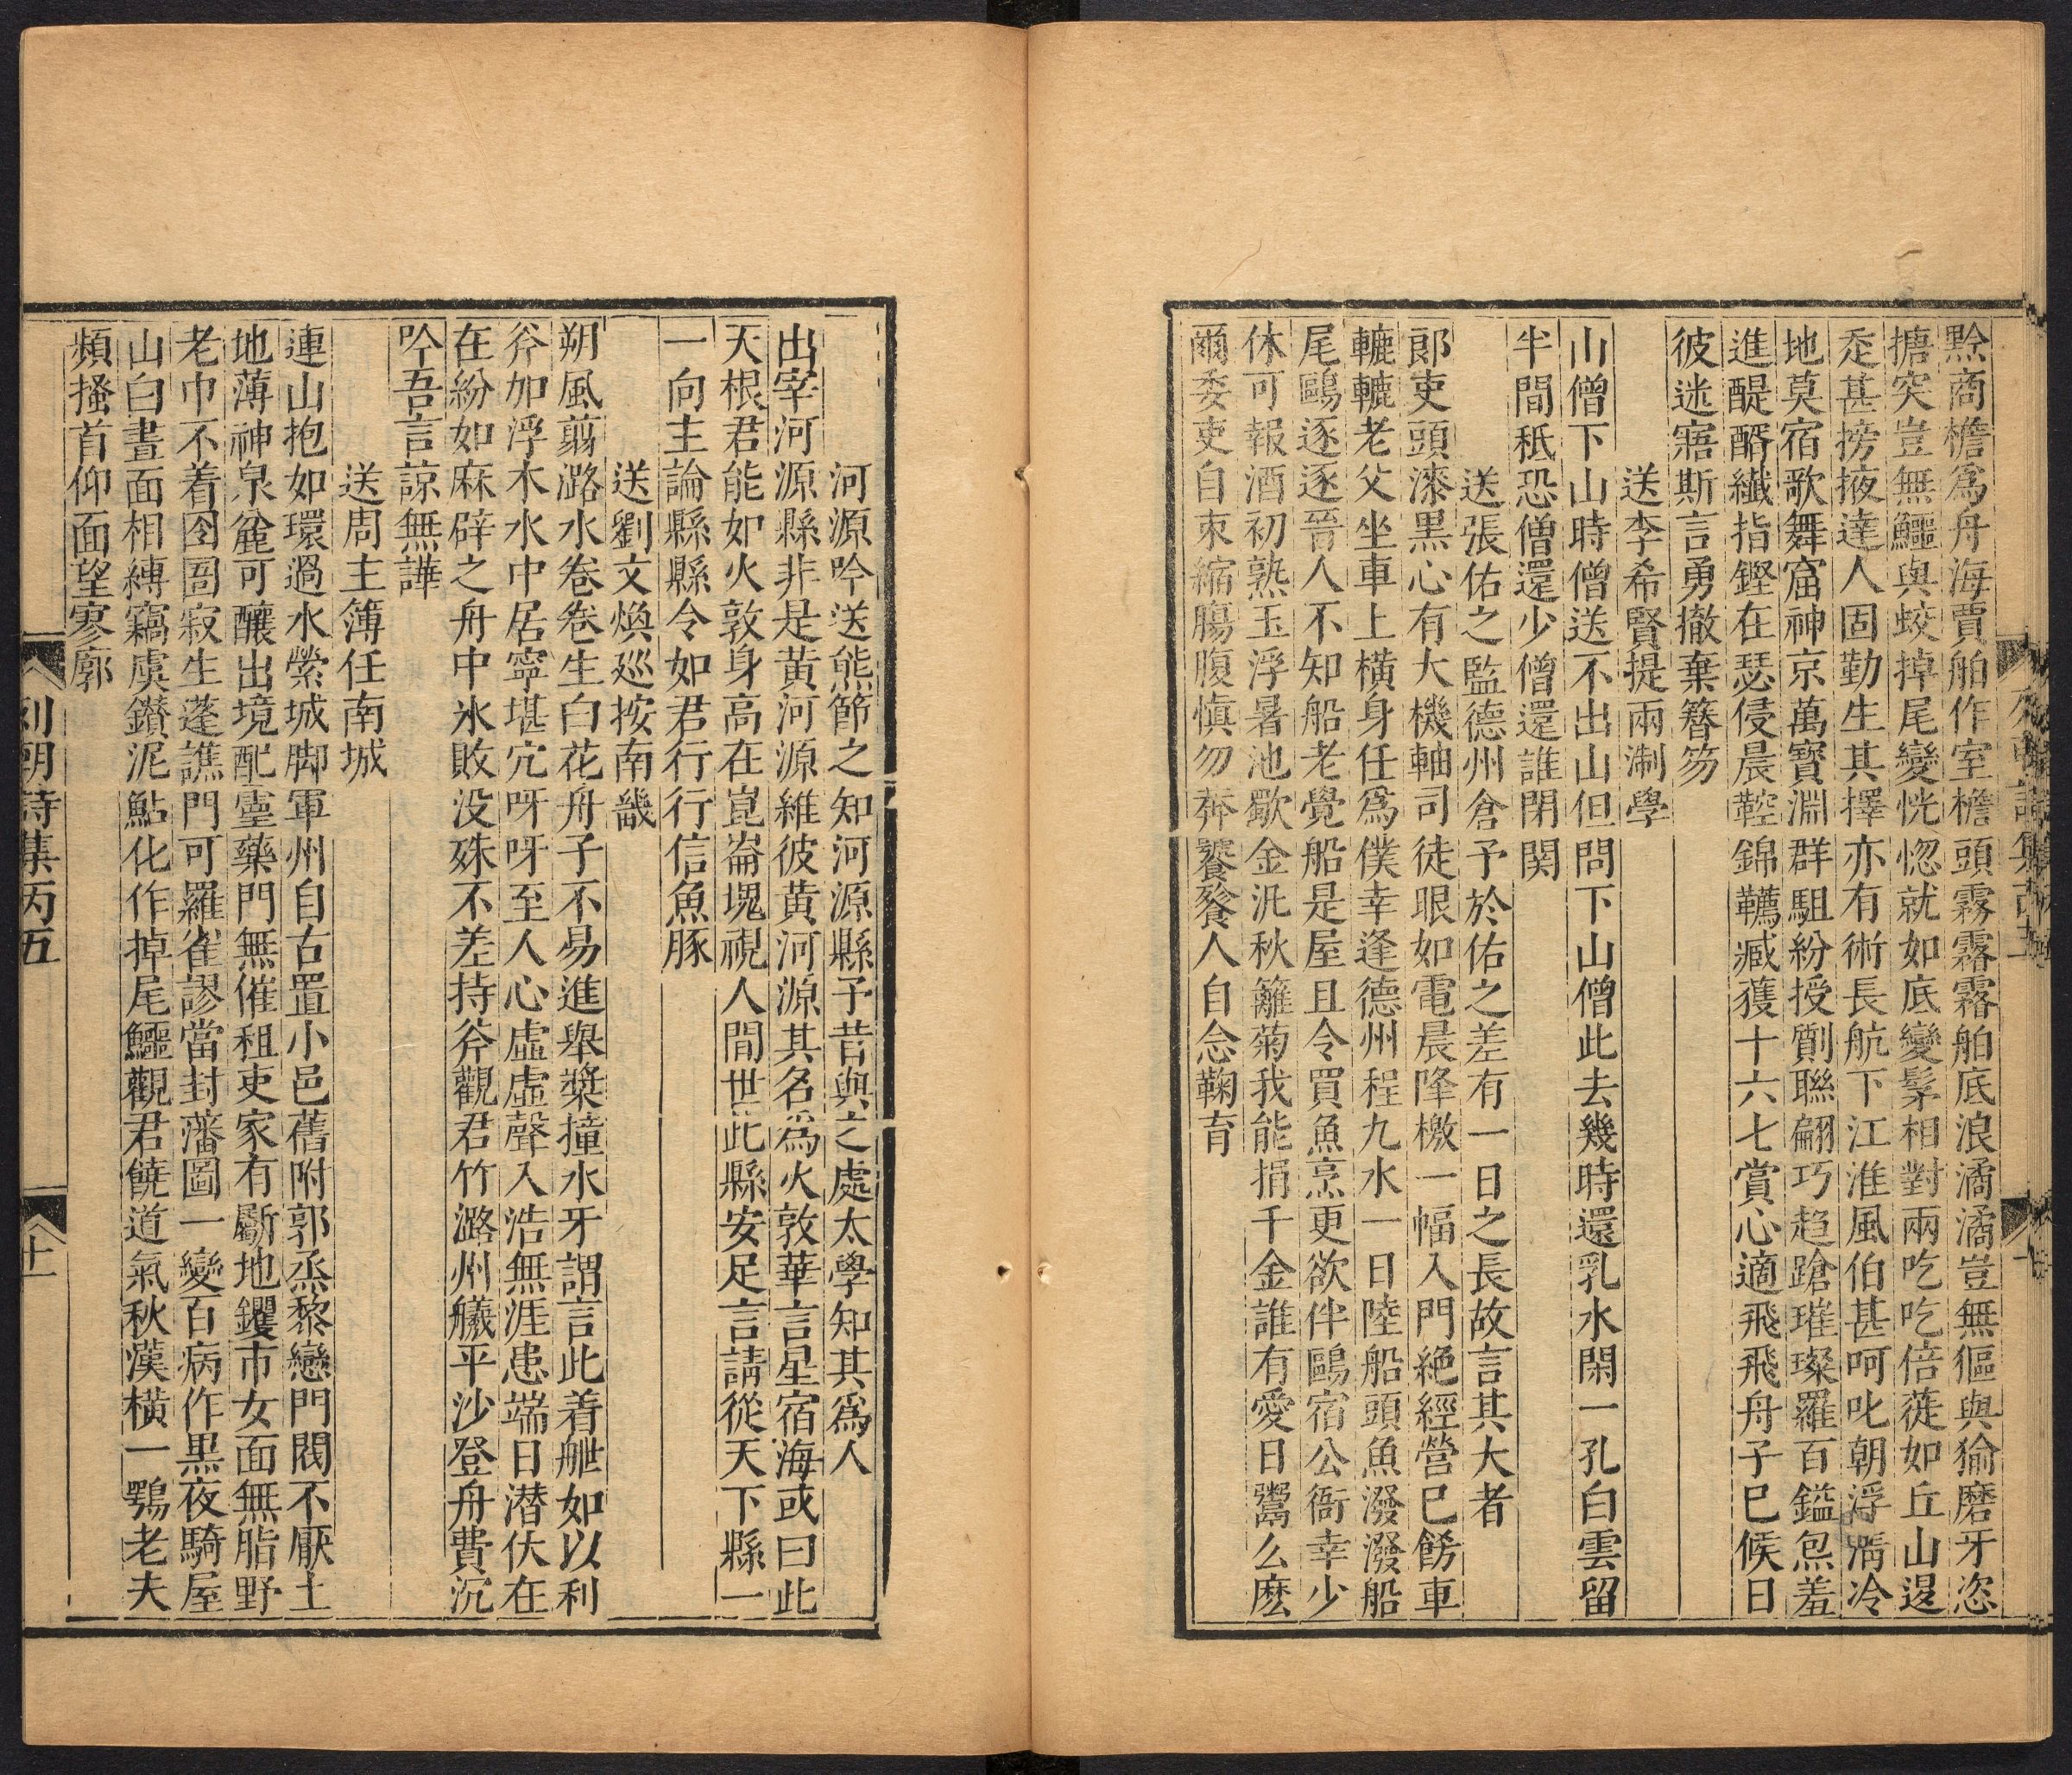 黥商檐爲舟海賈舶作室檐頭霧霧霧舶底浪潏潏豈無貙與㺄磨牙恣
搪突豈無鱷與蛟掉尾變恍惚就如底變髹相對兩吃吃倍蓰如丘山逞
忲甚搒掖達人固勤生其擇亦有術長航下江淮風伯甚呵叱朝浮淸冷
地莫宿歌舞窟神京萬寳淵群駔紛授劑聯翩巧趋蹌璀璨羅百鎰炰羞
進醍醑纎指鏗在瑟侵晨鞚錦韉臧獲十六七賞心適飛飛舟子已候日
彼迷寤斯言勇撤棄簪笏
送李希賢提兩淛學
山僧下山時僧送不出山但問下山僧此去幾時還乳水閑一孔白雲留
半間秪恐僧還少僧還誰閉関
送張佑之監德州倉予於佑之差有一日之長故言其大者
郎吏頭漆黒心有大機軸司徒眼如電晨降檄一幅入門絶經營已餝車
轆轆老父坐車上橫身任爲僕幸逢德州程九水一日陸船頭魚潑潑船
尾鷗逐逐晉人不知船老覺船是屋且令買魚烹更欲伴鷗宿公衙幸少
休可報酒初熟玉浮暑池歠金泛秋籬菊我能捐千金誰有愛日鬻么麽
爾委吏自朿縮腸腹愼勿莽饕餮人自念鞠育
河源吟送熊節之知河源縣予昔與之處太學知其爲人
出宰河源縣非是黄河源維彼黄河源其名爲火敦華言星宿海或曰此
天根君能如火敦身高在崑崙塊視人間世此縣安足言請從天下縣一
一向主論縣縣令如君行行信魚豚
送劉文煥廵按南畿
朔風翦潞水卷卷生白花舟子不易進舉槳撞水牙謂言此着舭如以利
斧加浮木水中居寧堪宂呀呀至人心虛虛聲入浩無涯患端日潜伏在
在紛如麻辟之舟中氷敗没殊不差持斧觀君竹潞州艤平沙登舟費沉
吟吾言諒無譁
送周主簿任南城
連山抱如環過水縈城脚軍州自古置小邑舊附郭烝黎戀門閥不厭土
地薄神泉麄可釀出境配靈藥門無催租吏家有斸地钁市女面無脂野
老巾不着囹圄寂生蓬譙門可羅雀謬當封藩圖一變百病作黒夜騎屋
山白晝面相縛竊虞鑚泥鮎化作掉尾鱷觀君饒道氣秋漢橫一鶚老夫
頻搔首仰面望寥廓
列朝詩集丙五
十